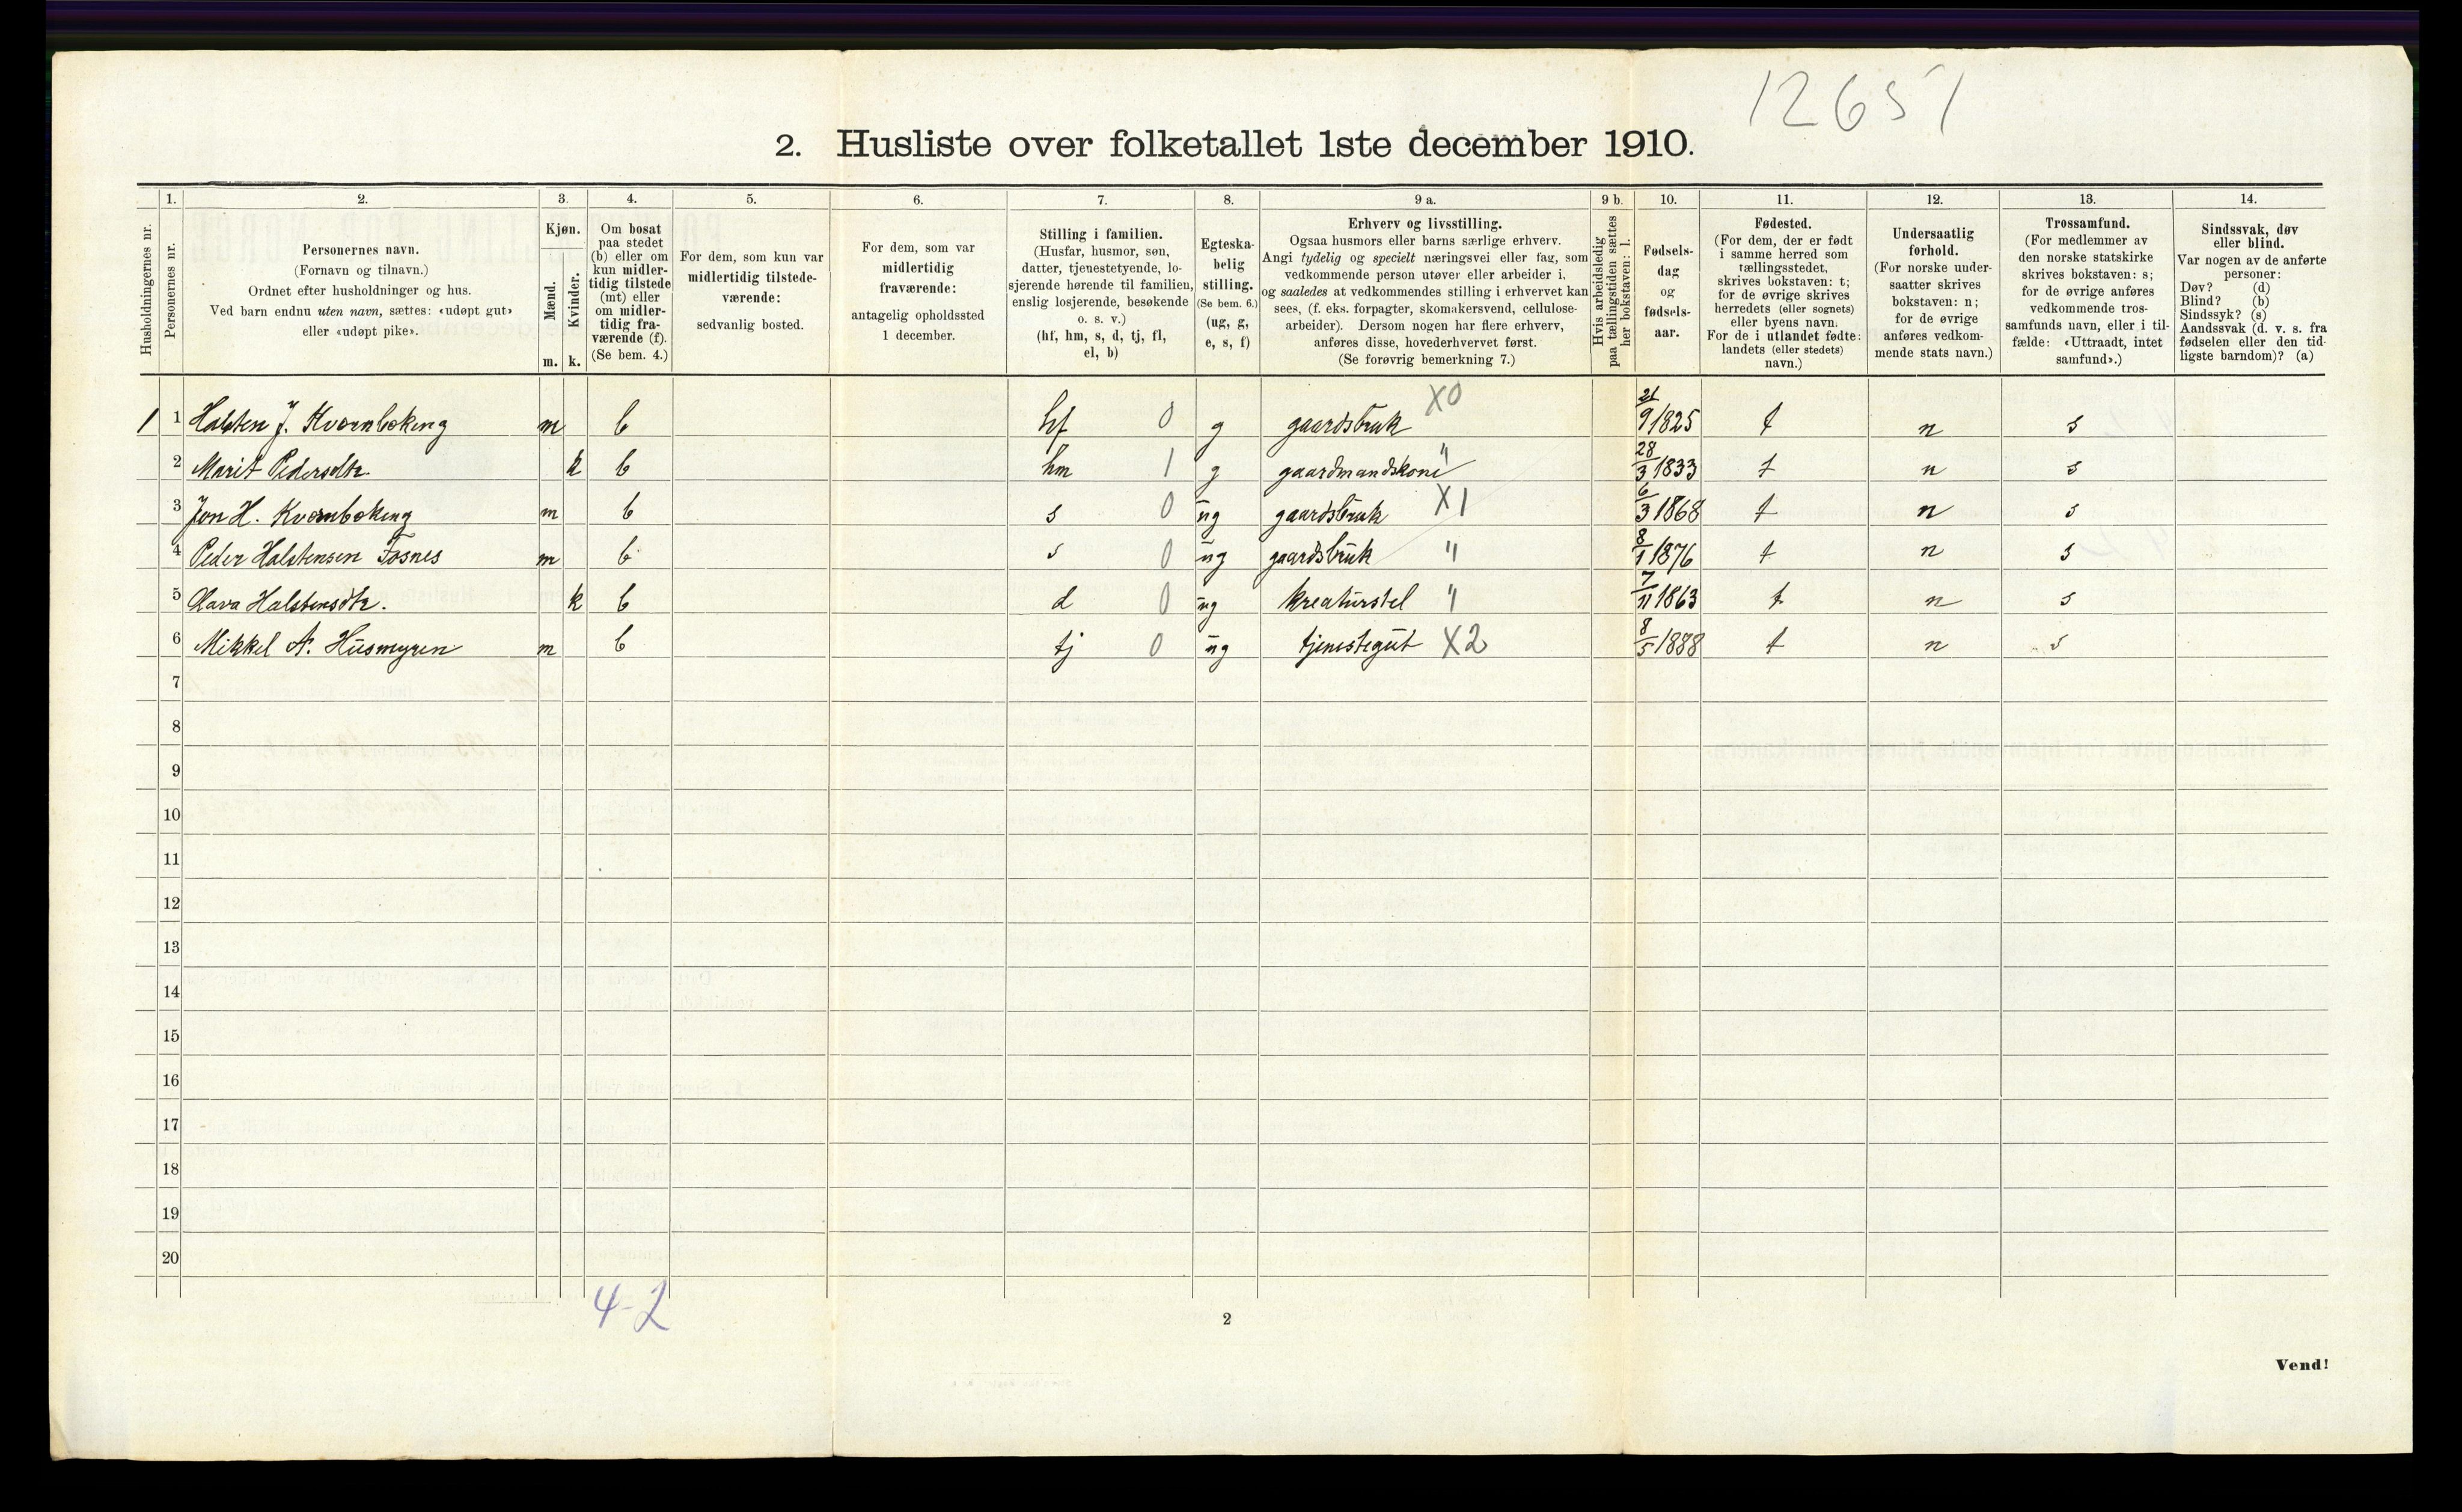 12651
2. Husliste over folketallet 1ste december 1910.
Husholdningernes nr.
1.
Personernes nr.
2.
Personernes navn.
(Fornavn og tilnavn.)
Ordnet efter husholdninger og hus.
Ved barn endnu uten navn, sættes: «udøpt gut»
eller «udøpt pike».
3.
Kjøn.
Mænd.
Kvinder.
m. k.
4.
Om bosat
paa stedet
(b) eller om
kun midler-
tidig tilstede
(mt) eller
om midler-
tidig fra-
værende (f).
(Se bem. 4.)
5.
For dem, som kun var
midlertidig tilstede-
værende:
sedvanlig bosted.
6.
For dem, som var
midlertidig
fraværende:
antagelig opholdssted
1 december.
7.
Stilling i familien.
(Husfar, husmor, søn,
datter, tjenestetyende, lo-
sjerende hørende til familien,
enslig losjerende, besøkende
o. s. v.)
(hf, hm, s, d, tj, fl,
el, b)
8.
Egteska-
belig
stilling.
(Se bem. 6.)
(ug, g,
e, s, f)
9 a.
Erhverv og livsstilling.
Ogsaa husmors eller barns særlige erhverv.
Angi tydelig og specielt næringsvei eller fag, som
vedkommende person utøver eller arbeider i,
og saaledes at vedkommendes stilling i erhvervet kan
sees, (f. eks. forpagter, skomakersvend, cellulose-
arbeider). Dersom nogen har flere erhverv,
anføres disse, hovederhvervet først.
(Se forøvrig bemerkning 7.)
9 b.
Hvis arbeidsledig
paa tællingstiden sættes
her bokstaven: l.
10.
Fødsels-
dag
og
fødsels-
aar.
11.
Fødested.
(For dem, der er født
i samme herred som
tællingsstedet,
skrives bokstaven: t;
for de øvrige skrives
herredets (eller sognets)
eller byens navn.
For de i utlandet fødte:
landets (eller stedets)
navn.)
12.
Undersaatlig
forhold.
(For norske under-
saatter skrives
bokstaven: n;
for de øvrige
anføres vedkom-
mende stats navn.)
13.
Trossamfund.
(For medlemmer av
den norske statskirke
skrives bokstaven: s;
for de øvrige anføres
vedkommende tros-
samfunds navn, eller i til-
fælde: «Uttraadt, intet
samfund».)
14.
Sindssvak, døv
eller blind.
Var nogen av de anførte
personer:
Døv? (d)
Blind? (b)
Sindssyk? (s)
Aandssvak (d. v. s. fra
fødselen eller den tid-
ligste barndom)? (a)
1 1 Halsten J. Kvornboking m b hf 0 g gaardsbruk X0 21/9 1825 t n s
2 Marit Pedersdtr. k b hm 1 g gaardmandskone " 28/3 1833 t n s
3 Jon H. Kvornboking m b s 0 ug gaardsbruk X1 6/3 1868 t n s
4 Peder Halstensen Fosnes m b s 0 ug gaardsbruk " 8/1 1876 t n s
5 Halstensdtr. k b d 0 ug kreaturstel " 7/11 1863 t n s
6 Mikkel A. Husmyren m b tj 0 ug tjenestegut X2 8/5 1888 t n s
7
8
9
10
11
12
13
14
15
16
17
18
19
20
4-2
2
Vend!